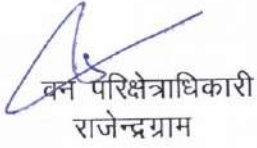 वन परिक्षेत्राधिकारी
राजेन्द्रग्राम